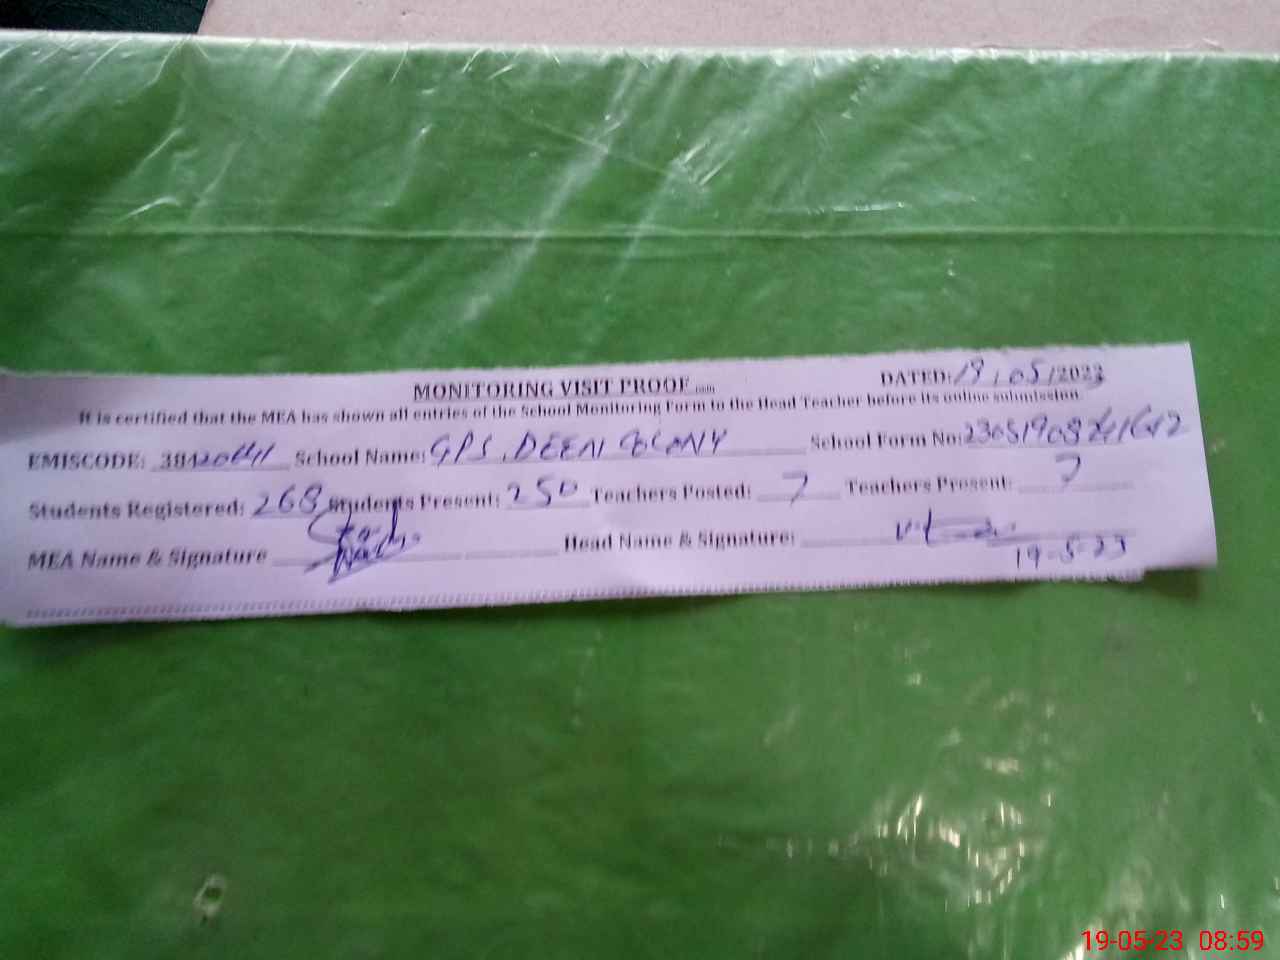 MONITORING VISIT PROOF DATED: 19/05/2023
It is certified that the MEA has shown all entries of the School Monitoring Form to the Head Teacher before its online submission
EMISCODE: School Name: GPS. DEEN COLONY School Form No:
Students Registered: 268 Students Present: 250 Teachers Posted: 7 Teachers Present: 7
MEA Name & Signature Head Name & Signature:
19-5-23
19-05-23 08:59